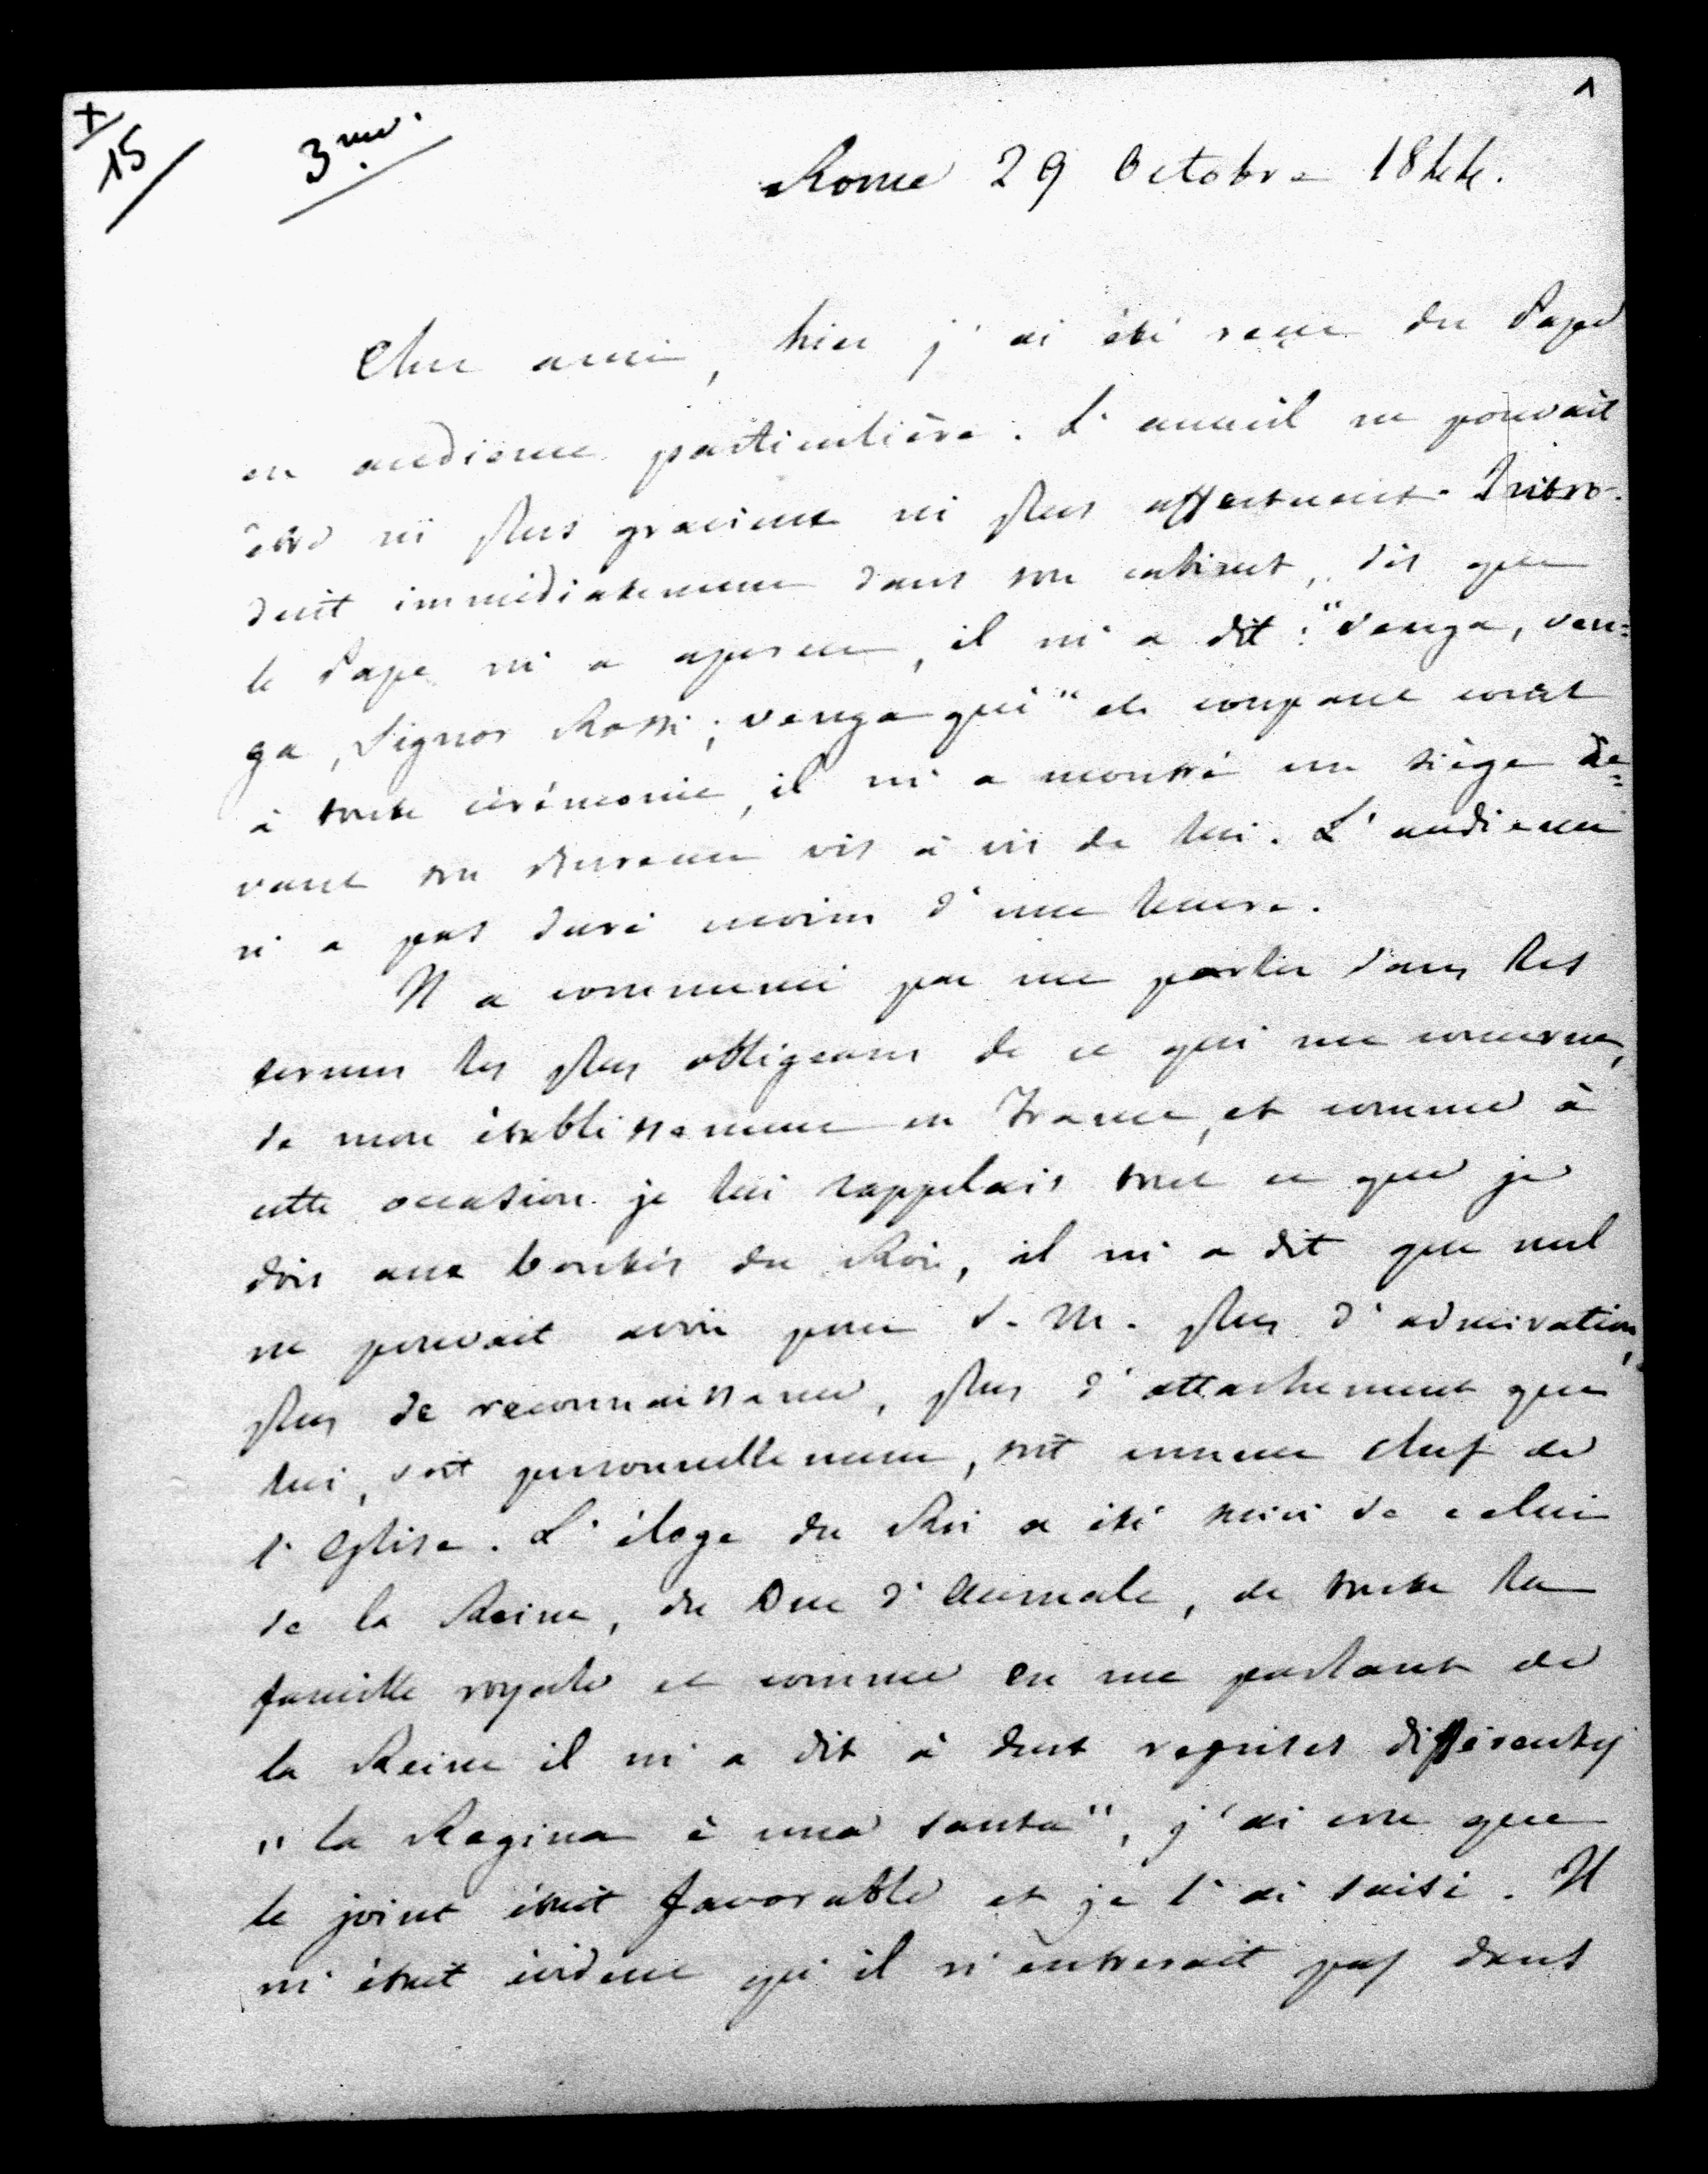 1
+
15
3me.
Rome 29 Octobre 1844.
Cher ami, hier j'ai été reçu du Pape
en audience particulière. L'accueil ne pouvait
être ni plus gracieux ni plus affectueux. Intro-
duit immédiatement dans son cabinet, dès que
le Pape m'a aperçu, il m'a dit : "Venga, ven=
ga, Signor Rossi ; venga qui" et coupant court
à toute cérémonie, il m'a montré un siège de=
vant son bureau vis à vis de lui. L'audience
n'a pas duré moins d'une heure.
Il a commencé par me parler dans les
termes les plus obligeans de ce qui me concerne,
de mon établissement en France, et comme à
cette occasion je lui rappelais tout ce que je
dois aux bontés du Roi, il m'a dit que nul
ne pouvait avoir pour S. M. plus d'admiration,
plus de reconnaissance, plus d'attachement que
lui, soit personnellement, soit comme chef de
l'Eglise. L'éloge du Roi a été suivi de celui
de la Reine, du Duc d'Aumale, de toute la
famille royale et comme en me parlant de
la Reine il m'a dit à deux reprises différentes
"la Regina è una santa", j'ai cru que
le joint était favorable et je l'ai saisi. Il
m'était évident qu'il n'entrerait pas dans